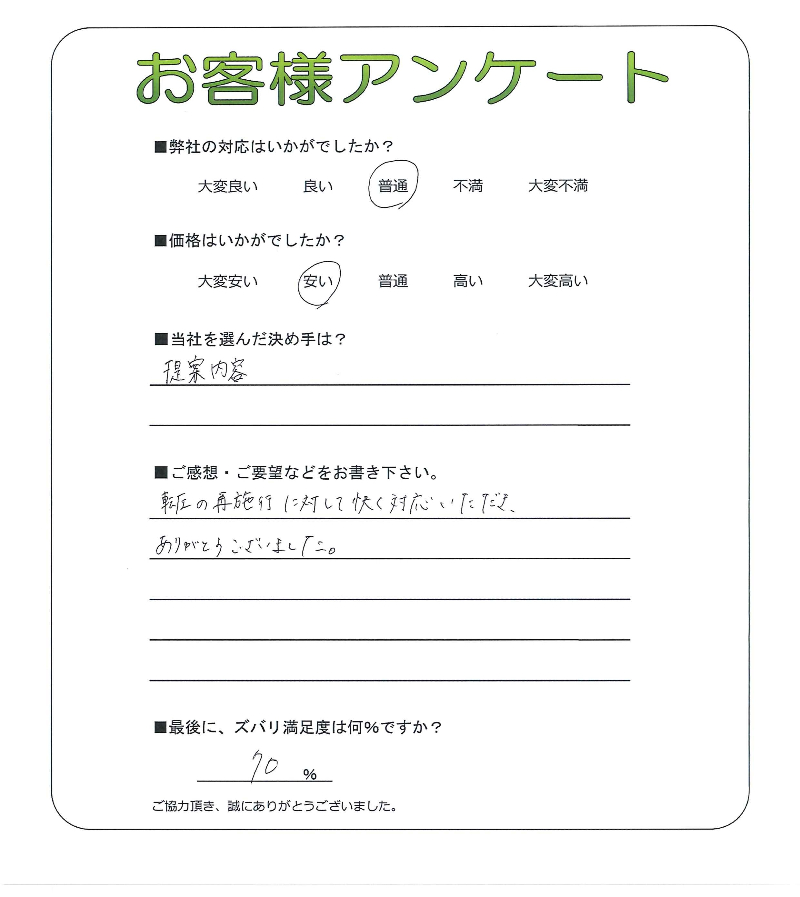 お客様アンケート
■弊社の対応はいかがでしたか?
大変良い 良い 普通 不満 大変不満
■価格はいかがでしたか?
大変安い 安い 普通 高い 大変高い
■当社を選んだ決め手は?
提案内容
■ご感想・ご要望などをお書き下さい。
転圧の再施行に対して快く対応いただき、
ありがとうございました。
■最後に、ズバリ満足度は何%ですか?
70 %
ご協力頂き、誠にありがとうございました。